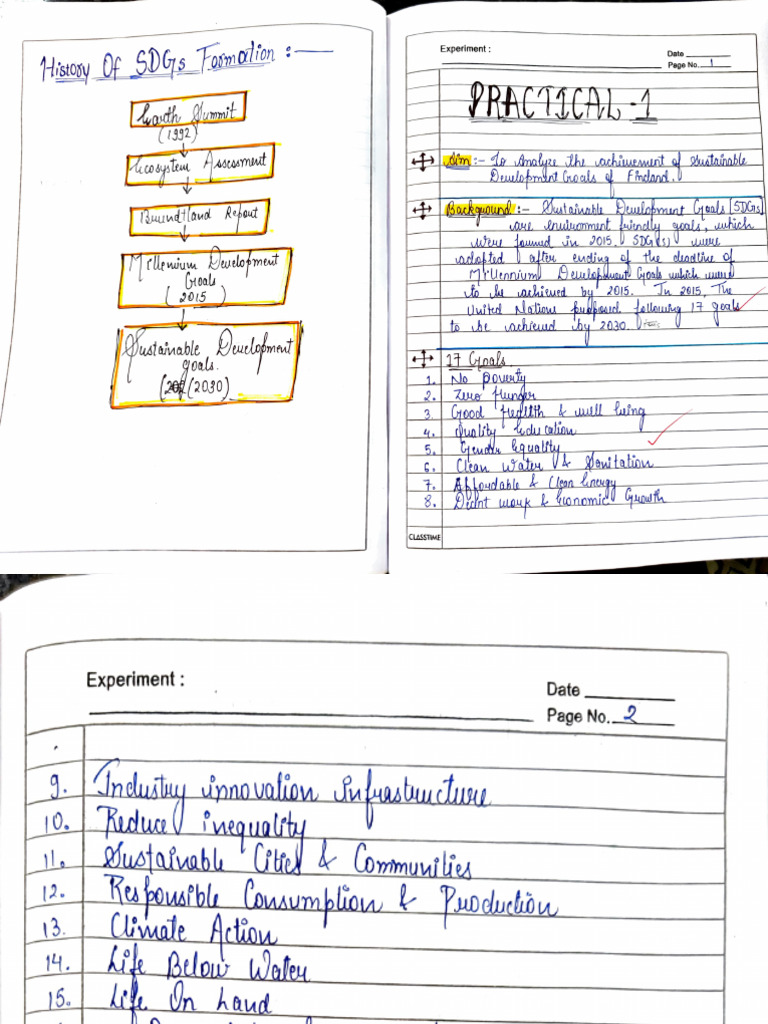 History Of SDGs Formation :-
Earth Summit
(1992)
Ecosystem Assessment
Brundtland Report
Millenium Development
Goals
(2015)
Sustainable Development
goals.
(2030)
Experiment :
Date
Page No. 1
PRACTICAL-1
Aim :- To Analyze the achievement of Sustainable
Development Goals of Finland.
Background :- Sustainable Development Goals [SDGs]
are environment friendly goals, which
were formed in 2015. SDG(s) were
adopted after ending of the deadline of
Millennium Development Goals which were
to be achieved by 2015. In 2015, The
United Nations proposed following 17 goals
to be achieved by 2030.
17 Goals
1. No poverty
2. Zero hunger
3. Good Health & well being
4. Quality Education
5. Gender Equality
6. Clean Water & Sanitation
7. Affordable & Clean Energy
8. work & Economic Growth
CLASSTIME
Experiment :
Date
Page No. 2
9. Industry innovation infrastructure
10. Reduce inequality
11. Sustainable Cities & Communities
12. Responsible Consumption & Production
13. Climate Action
14. Life Below Water
15. Life On Land